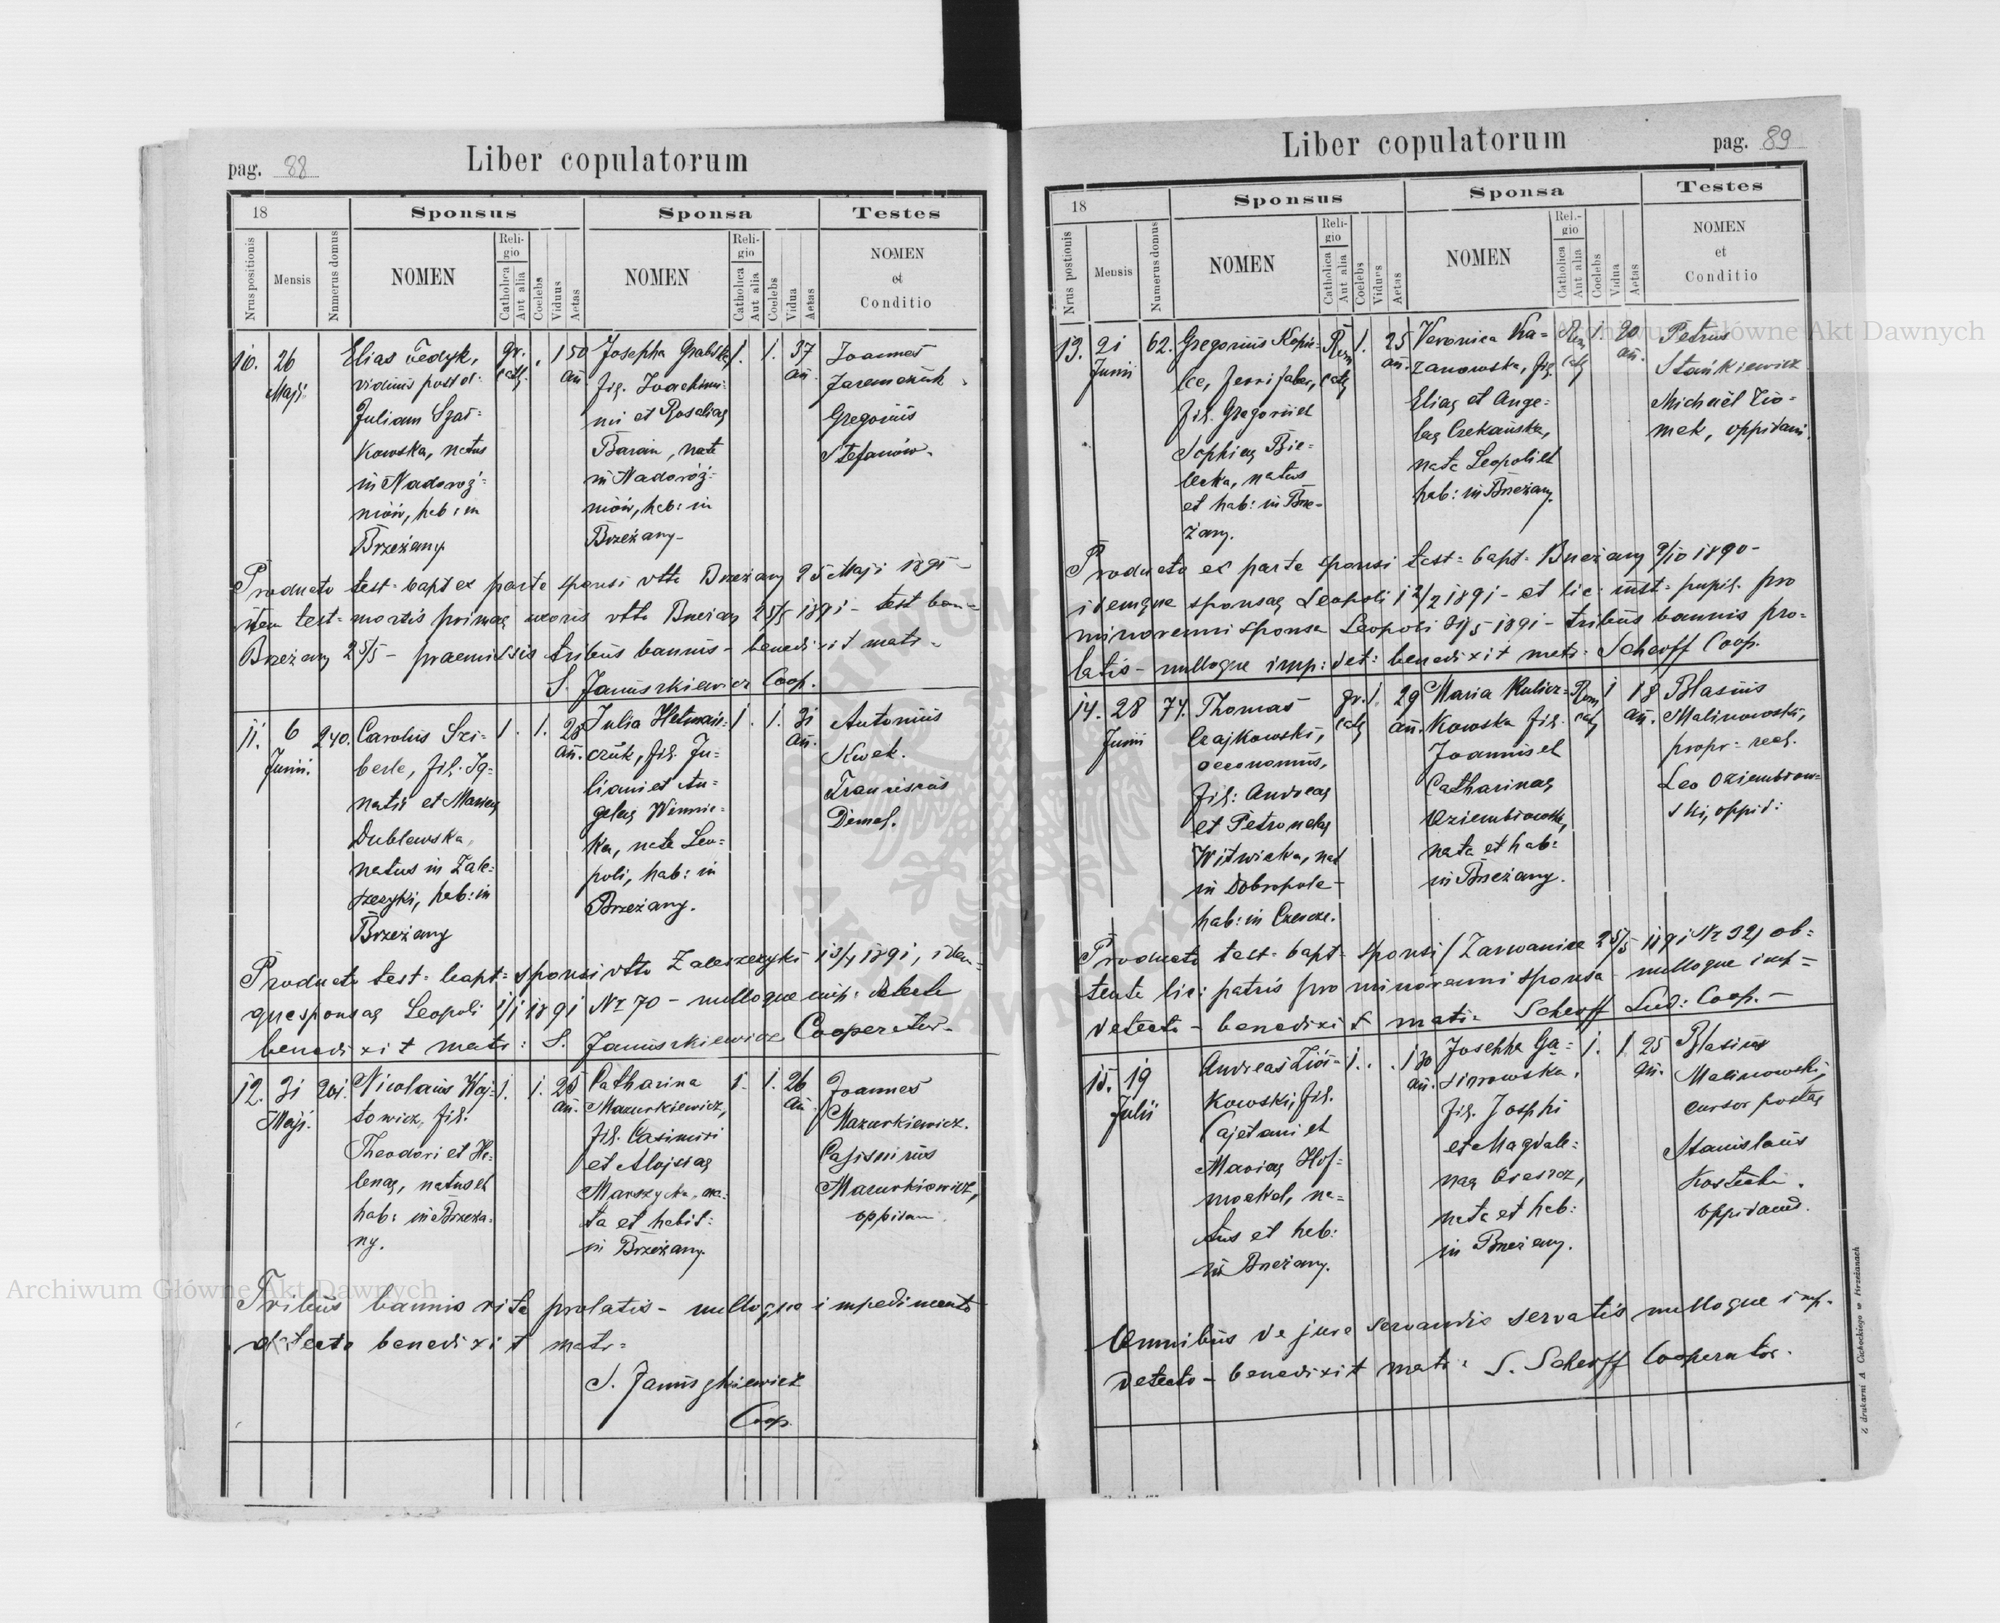 pag. 88
Liber copulatorum
18
Sponsus
Sponsa
Testes
Nrus positionis
Mensis
Numerus domus
NOMEN
Religio
Catholica
Aut alia
Coelebs
Viduus
Aetas
NOMEN
Religio
Catholica
Aut alia
Coelebs
Vidua
Aetas
NOMEN
et
Conditio
10. 26 Maji
Elias Fedyk,
viduus post ol:
Juliam Szad=
kowska, natus
in Nadoroż=
niów, hab: in
Brzeżany
gr. cath. 1 50 an.
Josepha Grabska
fil. Joachim=
mi et Rosaliae
Baran, nata
in Nadoróż=
niów, hab: in
Brzeżany
1. 1. 37 an.
Joannes
Jaremczuk
Gregorius
Stefanów.
Producto test. bapt ex parte sponsi dtto Brzeżany 25 Maji 1891 -
item test= mortis primae uxoris dtto Brzeżany 25/5 1891 - test ban=
Brzeżany 25/5 - praemissis tribus bannis - benedixit matr=
S. Januszkiewicz Coop.
11. 6 Junii. 240.
Carolus Szi=
berle, fil. Ig=
natii et Mariae
Dublewska,
natus in Zale=
szczyki, hab: in
Brzeżany
1. 1. 28 an.
Julia Hetmań=
czuk, fil. Ju=
liani et An=
gelae Winnic=
ka, nata Leo=
poli, hab: in
Brzeżany.
1. 1. 31 an.
Antonius
Kwek.
Franciscus
Demel.
Producto test= bapt= sponsi dtto Zaleszczyki 13/4 1891, idem=
que sponsae Leopoli 1/1 1891 Nr 70 - nulloque imp: detecto
benedixit matr: S. Januszkiewicz Cooperator.
12. 31 Maji. 201.
Nicolaus Woj=
towicz, fil.
Theodori et He=
lenae, natus et
hab: in Brzeża=
ny.
1. 1. 28 an.
Catharina
Mazurkiewicz,
fil. Casimiri
et Aloisiae
Marszycka, na=
ta et habit:
in Brzeżany.
1. 1. 26 an.
Joannes
Mazurkiewicz.
Casimirus
Mazurkiewicz,
oppidan.
Tribus bannis rite prolatis - nulloque impedimento
detecto benedixit matr=
S. Januszkiewicz
Coop.
Liber copulatorum
pag. 89
18
Sponsus
Sponsa
Testes
Nrus postionis
Mensis
Numerus domus
NOMEN
Religio
Catholica
Aut alia
Coelebs
Vidues
Aetas
NOMEN
Rel.-gio
Catholica
Aut alia
Coelebs
Vidua
Aetas
NOMEN
et
Conditio
13. 21 Junii 62.
Gregorius Kopie=
ferrifaber,
fil. Gregorii et
Sophiae Bie=
lecka, natus
et hab: in Brze=
żany.
Rom cath 1. 25 an.
Veronica Ka=
zanowska, fil.
Eliae et Ange=
lae Czekańska,
nata Leopoli et
hab: in Brzeżany.
Rom cath 1. 20 an.
Petrus
Stańkiewicz
Michaël Zio=
mek, oppidani.
Producto ex parte sponsi test= bapt= Brzeżany 9/10 1890 -
idemque sponsae Leopoli 12/2 1891 - et lic: inst= pupil. pro
minorenni sponsa Leopoli 21/5 1891 - tribus bannis pro=
latis - nulloque imp: det: benedixit matr: Scherff Coop.
14. 28 Junii 74.
Thomas
Czajkowski,
oeconomus,
fil: Andreae
et Petronelae
Witwicka, nat
in Dobropole -
hab: in Czercze.
gr. cath 1. 29 an.
Maria Kulicz=
kowska fil.
Joannis et
Catharinae
Dziembrowska,
nata et hab:
in Brzeżany.
Rom cath 1 18 an.
Blasius
Malinowski,
propr= real.
Leo Dziembrow=
ski, oppid:
Producto test= bapt= sponsi / Zarwanica 25/5 1891 Nr 321 ob=
tenta lic: patris pro minorenni sponsa - nulloque imp=
detecto - benedixit matr= Scherff Lud: Coop. -
15. 19 Julii
Andreas Ziół=
kowski, fil.
Cajetani et
Mariae Hof=
mockel, na=
tus et hab:
in Brzeżany.
1. 1 30 an.
Josepha Gą=
siorowska,
fil. Josephi
et Magdale=
nae
nata et hab:
in Brzeżany.
1. 1. 25 an.
Blasius
Malinowski,
cursor postae
Stanislaus
Kostecki.
oppidani.
Omnibus de jure servandis servatis nulloque imp.
detecto - benedixit matr: S. Scherff Cooperator.
Z drukarni A Cichockiego w Brzeżanach
Archiwum Główne Akt Dawnych
Archiwum Główne Akt Dawnych